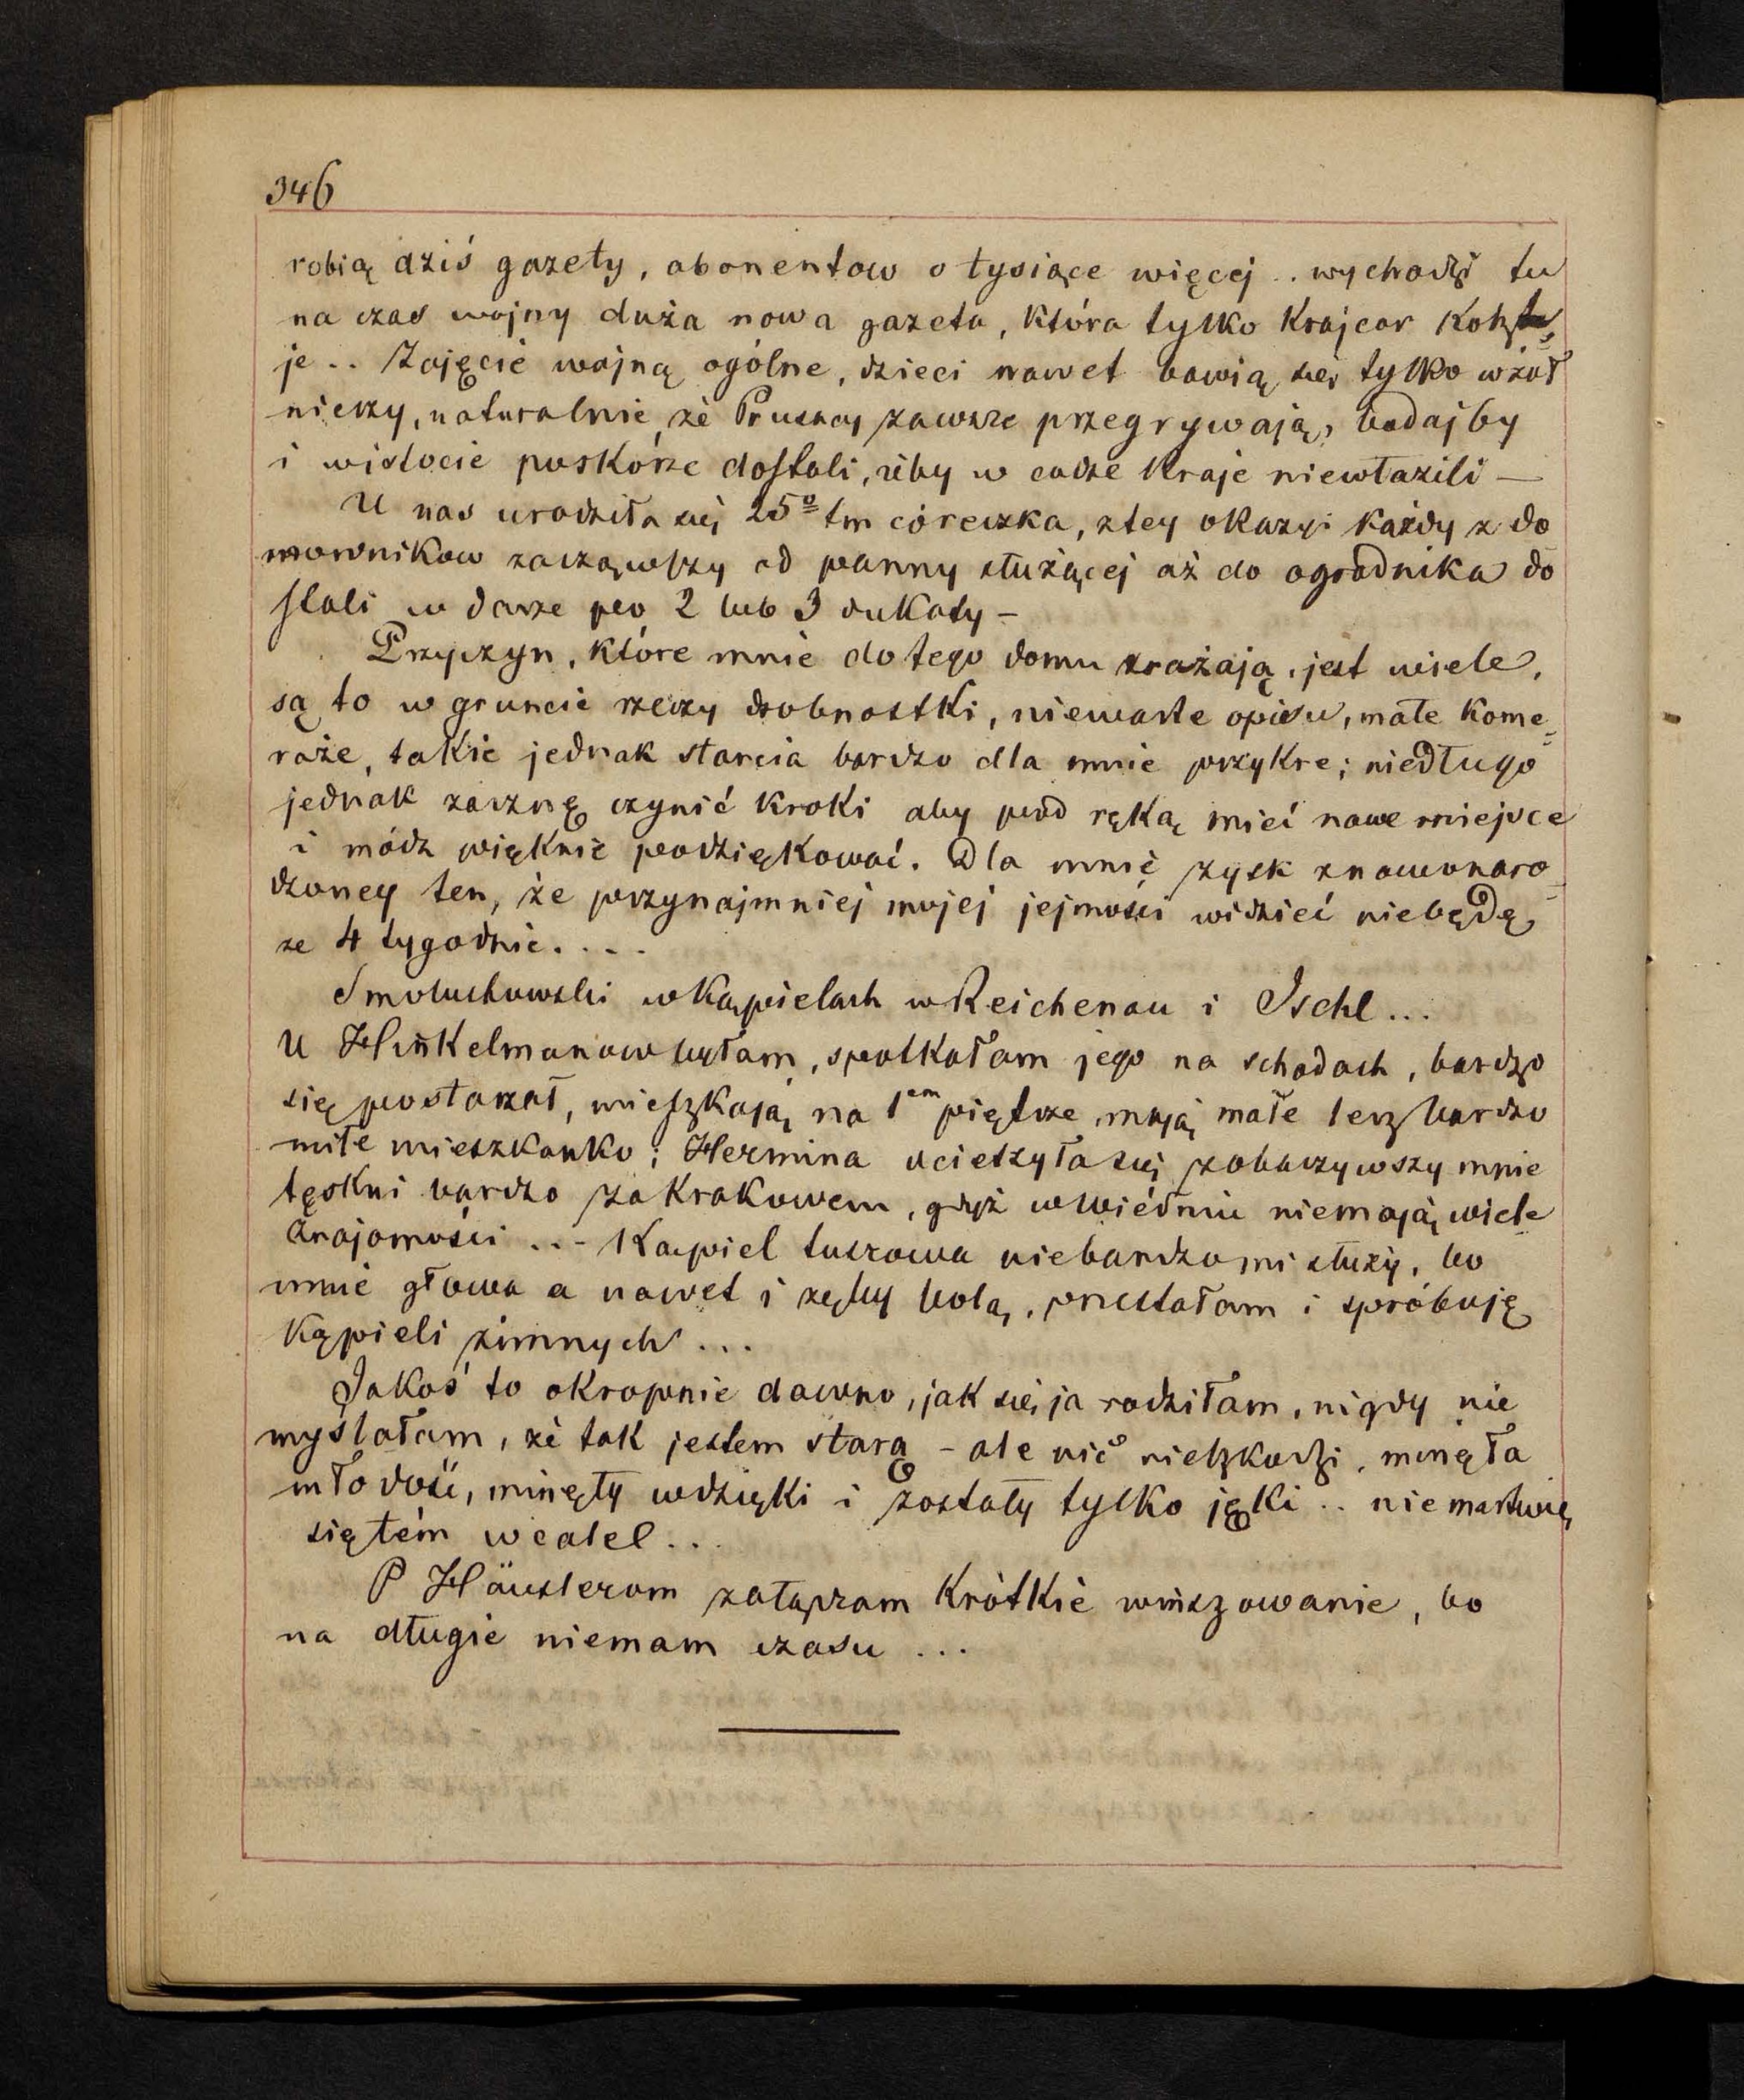 346
robią dziś gazety, abonentow o tysiące więcej .. wychodzi tu
na czas wojny duża nowa gazeta, która tylko Krajcar Kosztu=
je .. Zajęcie wojną ogólne, dzieci nawet bawią się tylko w żoł
nierzy, naturalnie, że Prusacy zawsze przegrywają, bodajby
i wistocie poskórze dostali, żeby w cudze Kraje niewłazili —
U nas urodziła się 25º tm córeczka, z tey okazyi każdy z do
mownikow zacząwszy od panny służącej aż do ogrodnika do
stali w darze po 2 lub 3 dukaty –
Przyczyn, które mnie do tego domu zrażają, jest wiele,
są to w gruncie rzeczy drobnostki, niewarte opisu, małe Kome=
raże, takie jednak starcia bardzo dla mnie przykre; niedługo
jednak zacznę czynić Kroki aby pod ręką mieć nowe miejsce
i módz pięknie podziękować. Dla mnie zysk znowonaro=
dzoney ten, że przynajmniej mojej jejmości widzieć niebędę
ze 4 tygodnie. . . .
Smoluchowski w Kąpielach w Reichenau i Ischl...
U Hinkelmanow byłam, spotkałam jego na schodach, bardzo
się postarzał, mieszkają na 1em piętrze, mają małe lecz bardzo
miłe mieszkanko; Hermina ucieszyła się zobaczywszy mnie
tęskni bardzo za Krakowem, gdyż w Wiédniu niemają wiele
Znajomości ... Kąpiel tuszowa niebardzo mi służy, bo
mnie głowa a nawet i zęby bolą, przestałam i spróbuję
Kąpieli zimnych ...
Jakoś to okropnie dawno, jak się ja rodziłam, nigdy nie
myślałam, że tak jestem starą – ale nic nieszkodzi, minęła
młodość, minęły wdzięki i zostały tylko jęki .. nie martwię
się tém wcalel ..
P Häuslerom załączam Krótkie winszowanie, bo
na długie niemam czasu ...